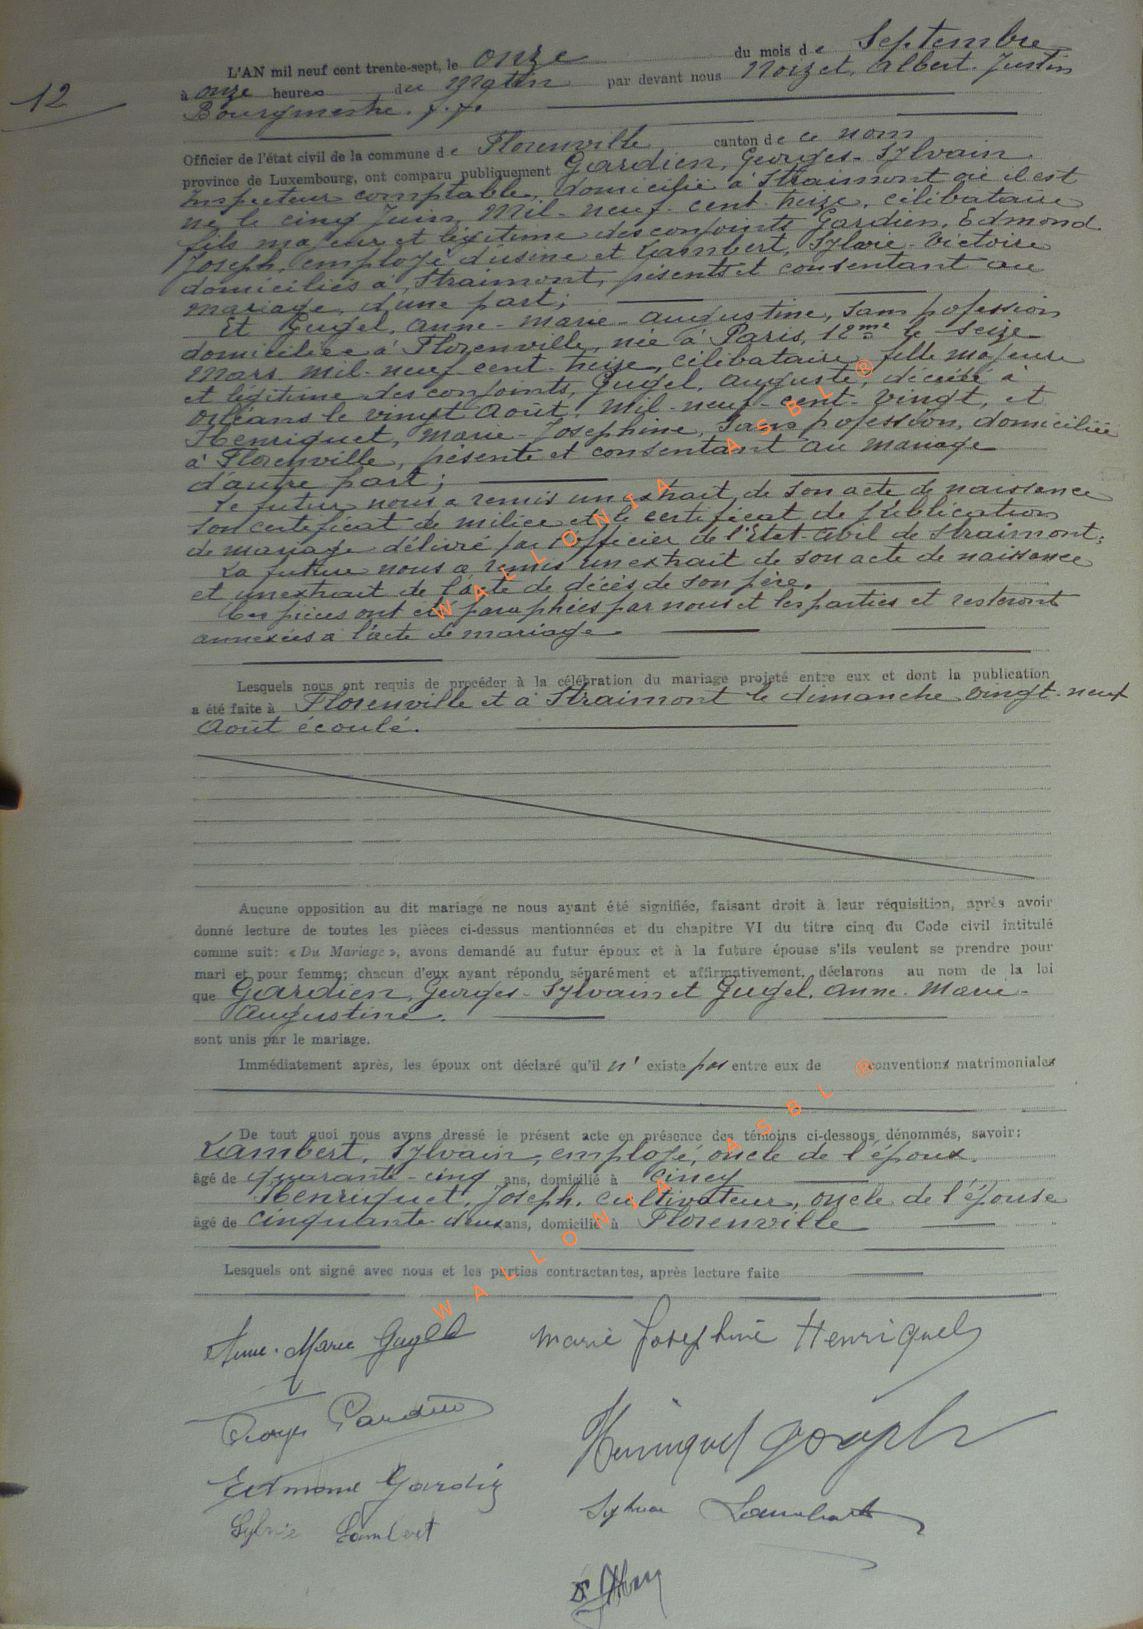 12
L'AN mil neuf cent trente-sept, le onze du mois de Septembre
à onze heures du Matin par devant nous Noizet, Albert-Justin
Bourgmestre. f. f.
Officier de l'état civil de la commune de Florenville canton de ce nom
province de Luxembourg, ont comparu publiquement Gardien, Georges-Sylvain
Inspecteur comptable, domicilié à Straimont où il est
né le cinq Juin Mil-neuf-cent-treize, célibataire
fils majeur et légitime des conjoints Gardien, Edmond
Joseph, employé d'usine et Lambert, Sylvie-Victoire
domiciliés à Straimont, présents et consentant au
mariage, d'une part;
Et Gugel, Anne-Marie-Augustine, sans profession
domiciliée à Florenville, née à Paris, 12me le seize
Mars mil-neuf cent-treize, célibataire, fille majeure
et légitime des conjoints, Gugel, Auguste, décédé à
Orléans le vingt Août, Mil-neuf-cent-vingt, et
Henriquet, Marie-Josephine, Sans profession, domiciliée
à Florenville, présente et consentant au mariage
d'autre part;
Le futur nous a remis un extrait de son acte de naissance
son certificat de milice et le certificat de publication
de mariage délivré par l'Officier de l'Etat-Civil de Straimont;
La future nous a remis un extrait de son acte de naissance
et un extrait de l'acte de décès de son père.
Ces pièces ont été paraphées par nous et les parties et resteront
annexées à l'acte de mariage.
Lesquels nous ont requis de procéder à la célébration du mariage projeté entre eux et dont la publication
a été faite à Florenville et à Straimont le dimanche vingt-neuf
Août écoulé.
Aucune opposition au dit mariage ne nous ayant été signifiée, faisant droit à leur réquisition, après avoir
donné lecture de toutes les pièces ci-dessus mentionnées et du chapitre VI du titre cinq du Code civil intitulé
comme suit: « Du Mariage », avons demandé au futur époux et à la future épouse s'ils veulent se prendre pour
mari et pour femme; chacun d'eux ayant répondu séparément et affirmativement, déclarons au nom de la loi
que Gardien, Georges-Sylvain et Gugel, Anne-Marie-
Augustine.
sont unis par le mariage.
Immédiatement après, les époux ont déclaré qu'il n'existe pas entre eux de conventions matrimoniales
De tout quoi nous avons dressé le présent acte en présence des témoins ci-dessous dénommés, savoir:
Lambert, Sylvain, employé, oncle de l'époux.
âgé de quarante-cinq ans, domicilié à Ciney
Henriquet, Joseph, cultivateur, oncle de l'épouse
âgé de cinquante-deux ans, domicilié à Florenville
Lesquels ont signé avec nous et les parties contractantes, après lecture faite
Anne-Marie Gugel Marie Josephine Henriquet
Georges Gardien
Henriquet Joseph
Edmond Gardien
Sylvain Lambert
Sylvie Lambert
WALLONIA ASBL ®
WALLONIA ASBL ®